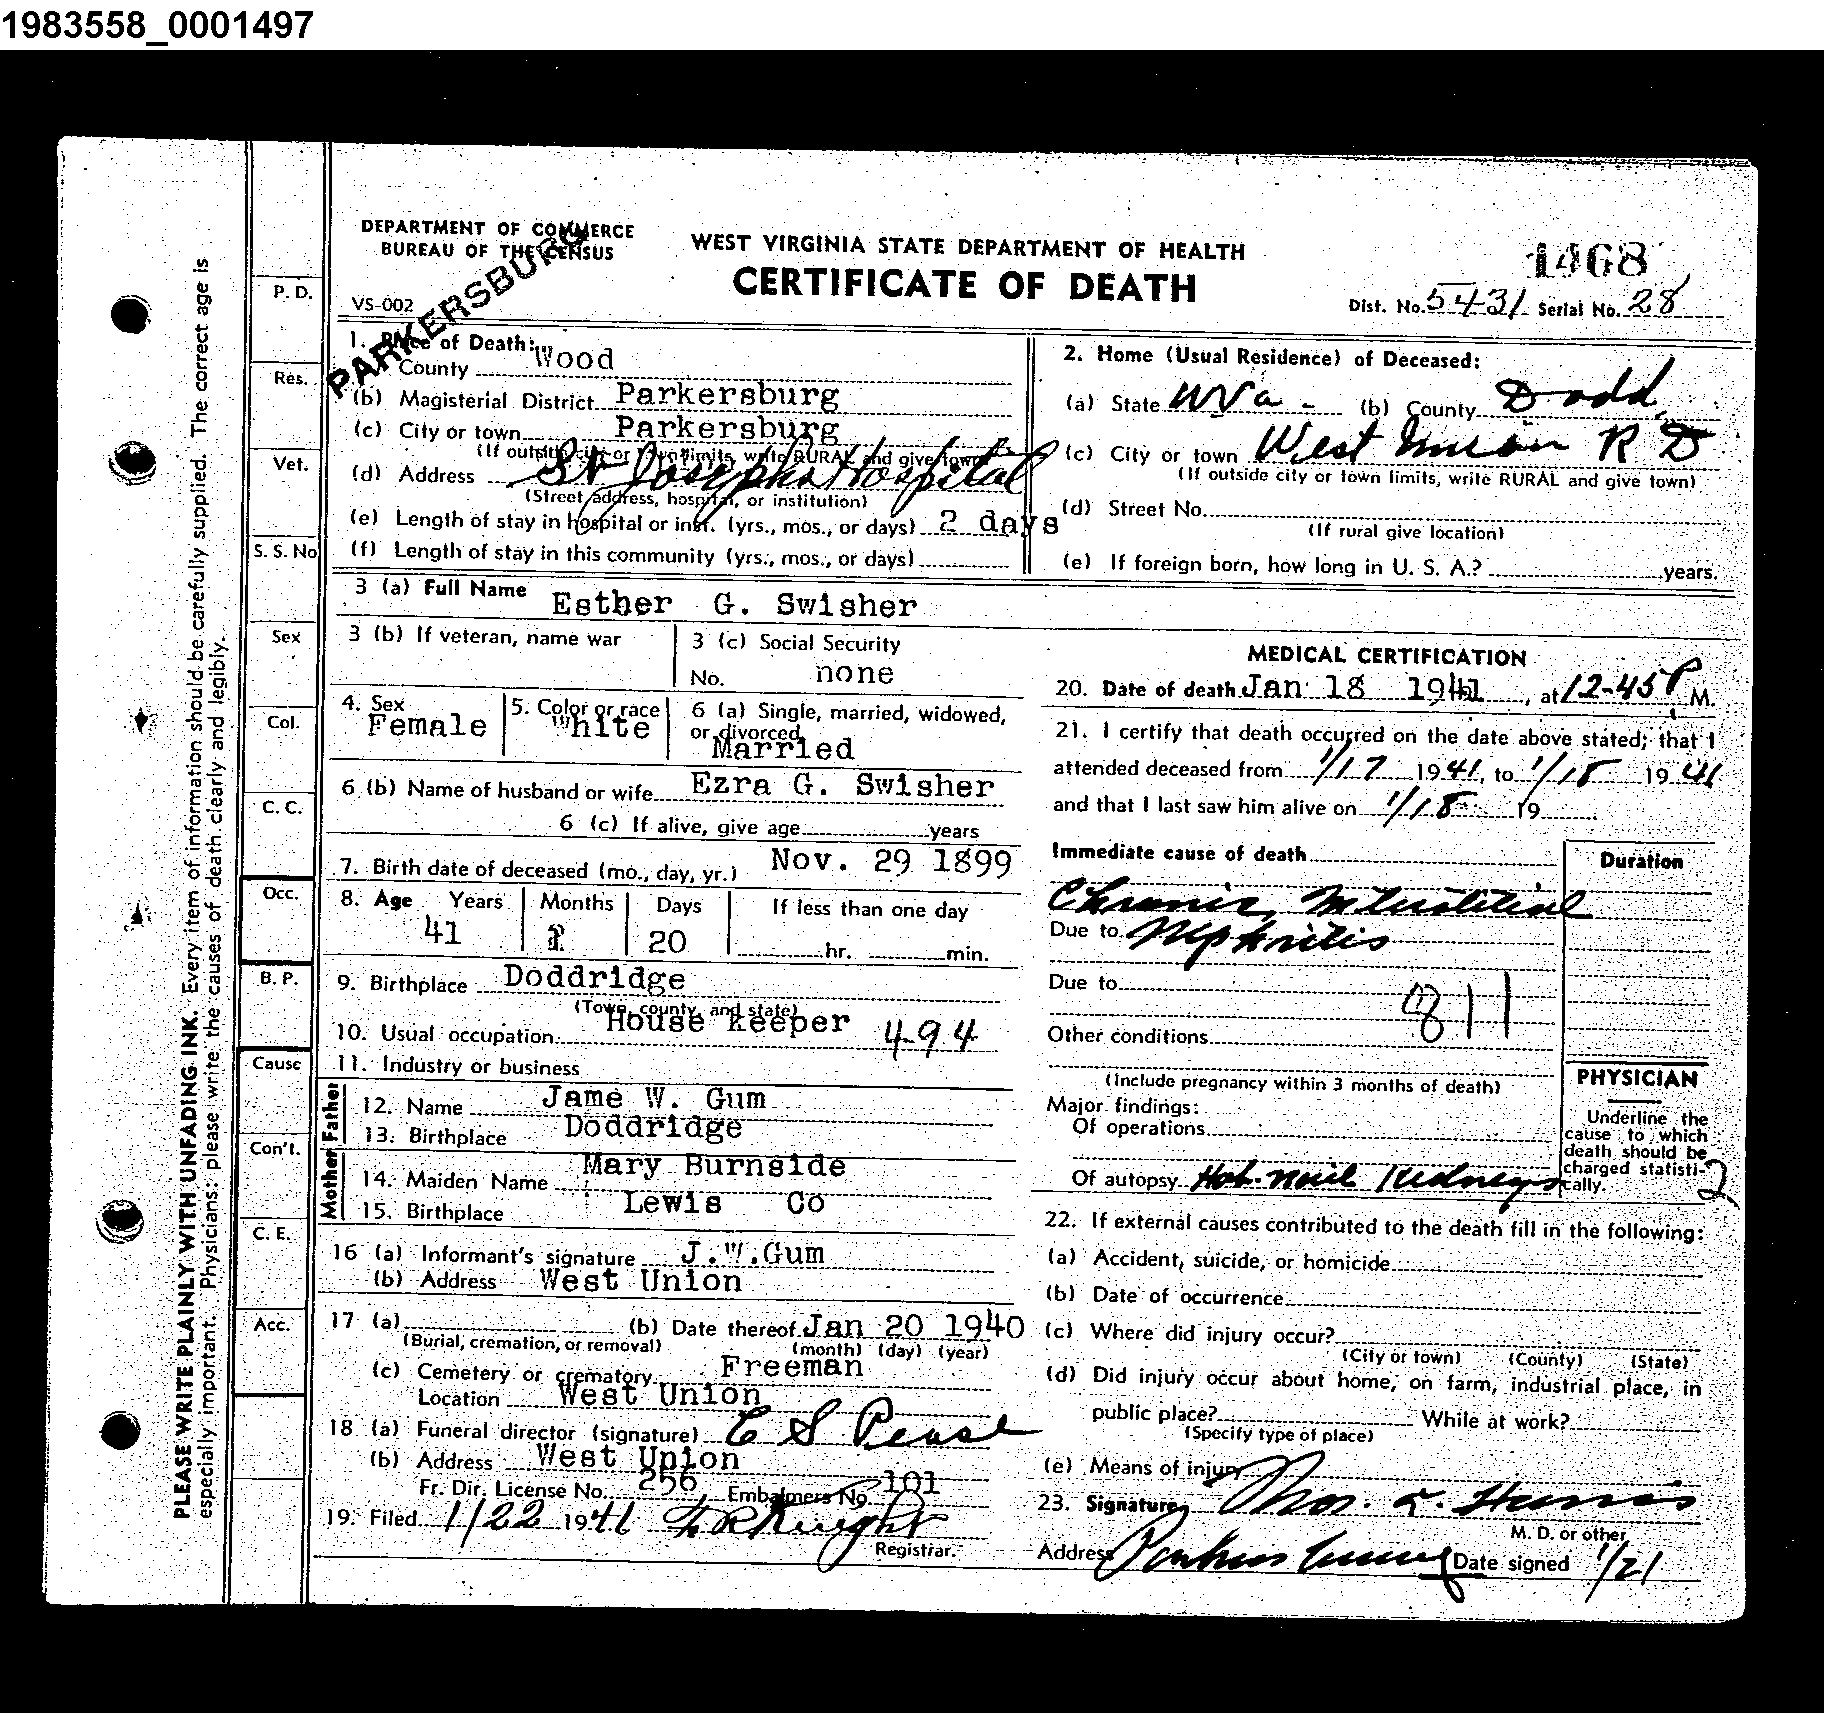 1983558_0001497
DEPARTMENT OF COMMERCE
BUREAU OF THE CENSUS
PARKERSBURG
VS-002
WEST VIRGINIA STATE DEPARTMENT OF HEALTH
CERTIFICATE OF DEATH
1468
Dist. No. 5431 Serial No. 28
1. Place of Death:
County Wood
(b) Magisterial District Parkersburg
(c) City or town Parkersburg
(If outside city or town limits, write RURAL and give town)
(d) Address St Josephs Hospital
(Street address, hospital, or institution)
(e) Length of stay in hospital or inst. (yrs., mos., or days) 2 days
(f) Length of stay in this community (yrs., mos., or days)
2. Home (Usual Residence) of Deceased:
(a) State W Va - (b) County Dodd.
(c) City or town West Union R D
(If outside city or town limits, write RURAL and give town)
(d) Street No.
(If rural give location)
(e) If foreign born, how long in U. S. A.? years.
3 (a) Full Name Esther G. Swisher
3 (b) If veteran, name war
3 (c) Social Security
No. none
4. Sex Female
5. Color or race White
6 (a) Single, married, widowed,
or divorced Married
6 (b) Name of husband or wife Ezra G. Swisher
6 (c) If alive, give age years
7. Birth date of deceased (mo., day, yr.) Nov. 29 1899
8. Age Years Months Days If less than one day
41 1 20 hr. min.
9. Birthplace Doddridge
(Town, county, and state)
10. Usual occupation House keeper 494
11. Industry or business
Father
12. Name Jame W. Gum
13. Birthplace Doddridge
Mother
14. Maiden Name Mary Burnside
15. Birthplace Lewis Co
16 (a) Informant's signature J.W.Gum
(b) Address West Union
17 (a) (b) Date thereof Jan 20 1940
(Burial, cremation, or removal) (month) (day) (year)
(c) Cemetery or crematory Freeman
Location West Union
18 (a) Funeral director (signature) C S Pease
(b) Address West Union
Fr. Dir. License No. 256 Embalmers No. 101
19. Filed 1/22 1941 Knight
Registrar.
MEDICAL CERTIFICATION
20. Date of death Jan 18 1941, at 12-45 P M.
21. I certify that death occurred on the date above stated; that I
attended deceased from 1/17 1941, to 1/18 1941
and that I last saw him alive on 1/18 19
Immediate cause of death
Duration
Chronic Interstitial
Due to Nephritis
Due to
811
Other conditions
(Include pregnancy within 3 months of death)
Major findings:
Of operations
Of autopsy Hob-nail Kidneys
PHYSICIAN
Underline the
cause to which
death should be
charged statisti-
cally.
2
22. If external causes contributed to the death fill in the following:
(a) Accident, suicide, or homicide
(b) Date of occurrence
(c) Where did injury occur?
(City or town) (County) (State)
(d) Did injury occur about home, on farm, industrial place, in
public place? While at work?
(Specify type of place)
(e) Means of injury
23. Signature Thos. L. Harris
M. D. or other
Address Parkersburg Date signed 1/21
P. D.
Res.
Vet.
S. S. No
Sex
Col.
C. C.
Occ.
B. P.
Cause
Con't.
C. E.
Acc.
PLEASE WRITE PLAINLY WITH UNFADING INK. Every item of information should be carefully supplied. The correct age is
especially important. Physicians: please write the causes of death clearly and legibly.